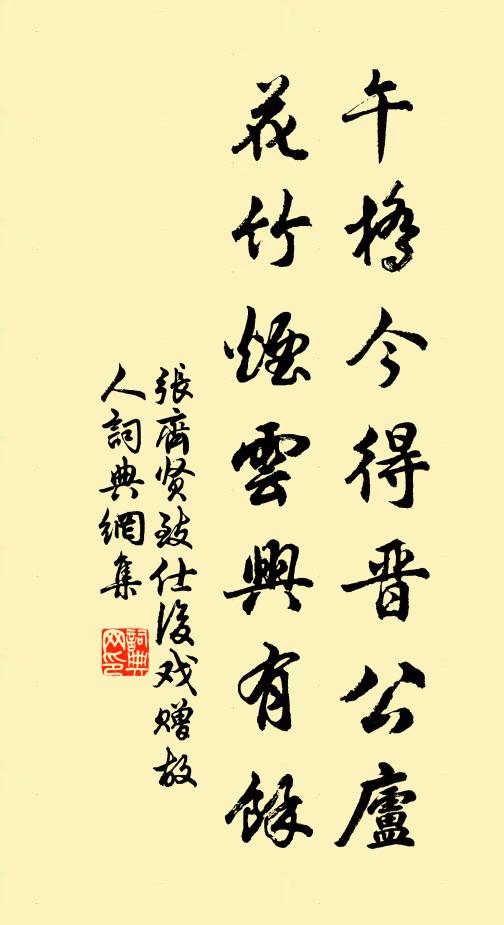 午橋今得晋公廬
花竹煙雲興有餘
張齊贤致仕後戏赠故
人詞典網集
詞典网印